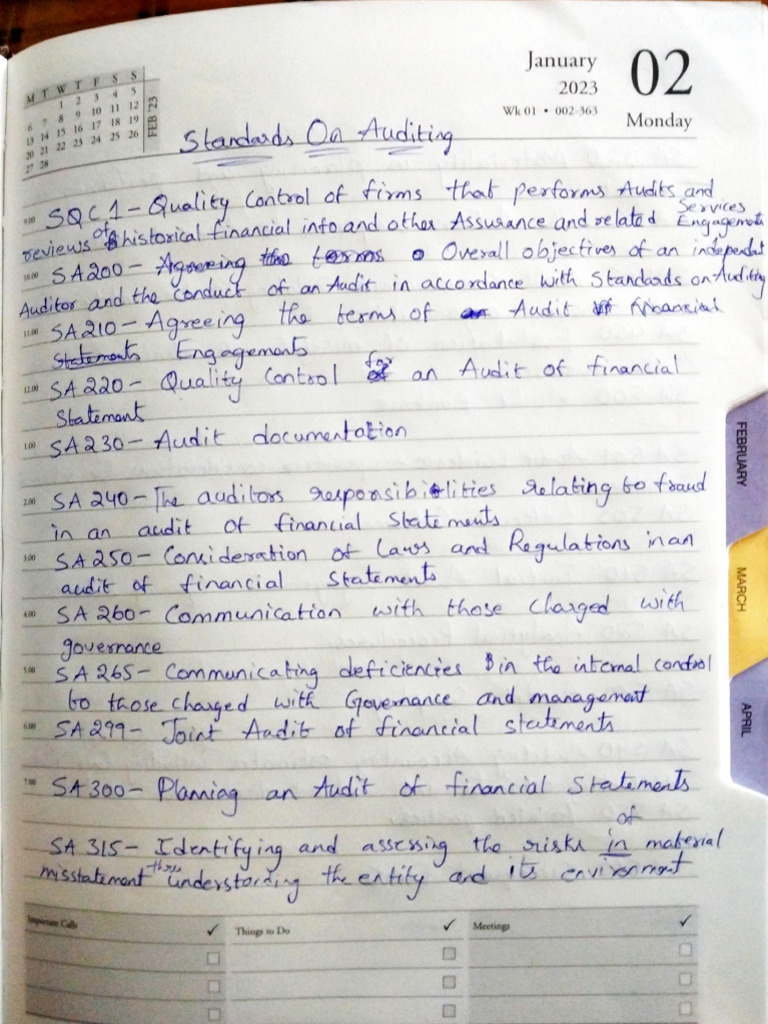 January
2023
Wk 01 • 002-363
02
Monday
M T W T F S S
1 2 3 4 5
6 7 8 9 10 11 12
13 14 15 16 17 18 19
20 21 22 23 24 25 26
27 28
FEB '23
Standards On Auditing
9.00 SQC 1 - Quality Control of firms that performs Audits and
reviews of historical financial info and other Assurance and related Services Engagements
10.00 SA 200 - Agreeing the terms Overall objectives of an independent
Auditor and the conduct of an Audit in accordance with Standards on Auditing
11.00 SA 210 - Agreeing the terms of an Audit of financial
Statements Engagements
12.00 SA 220 - Quality Control for an Audit of financial
Statement
1.00 SA 230 - Audit documentation
2.00 SA 240 - The auditors responsibilities relating to fraud
in an audit of financial Statements
3.00 SA 250 - Consideration of Laws and Regulations in an
audit of financial Statements
4.00 SA 260 - Communication with those charged with
governance
5.00 SA 265 - Communicating deficiencies in the internal control
to those charged with Governance and management
6.00 SA 299 - Joint Audit of financial statements
7.00 SA 300 - Planning an Audit of financial Statements
of
SA 315 - Identifying and assessing the risks in material
misstatement thro understanding the entity and its environment
Important Calls ✓
Things to Do ✓
Meetings ✓
FEBRUARY
MARCH
APRIL